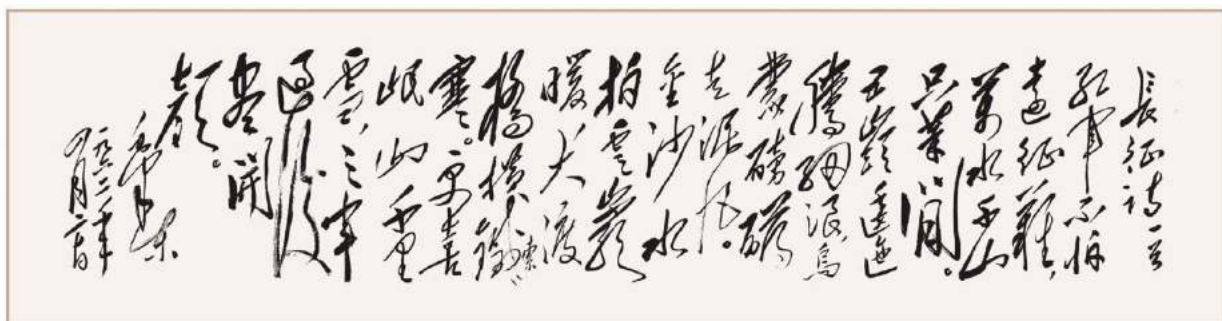 長征詩一首
紅軍不怕
遠征難，
萬水千山
只等閒。
五嶺逶迤
騰細浪，烏
蒙磅礴
走泥丸。
金沙水
拍雲巖
暖，大渡
橋橫鐵索
寒。更喜
岷山千里
雪，三軍
過後
盡開
顏。
毛澤東
一九六二年
四月二十日